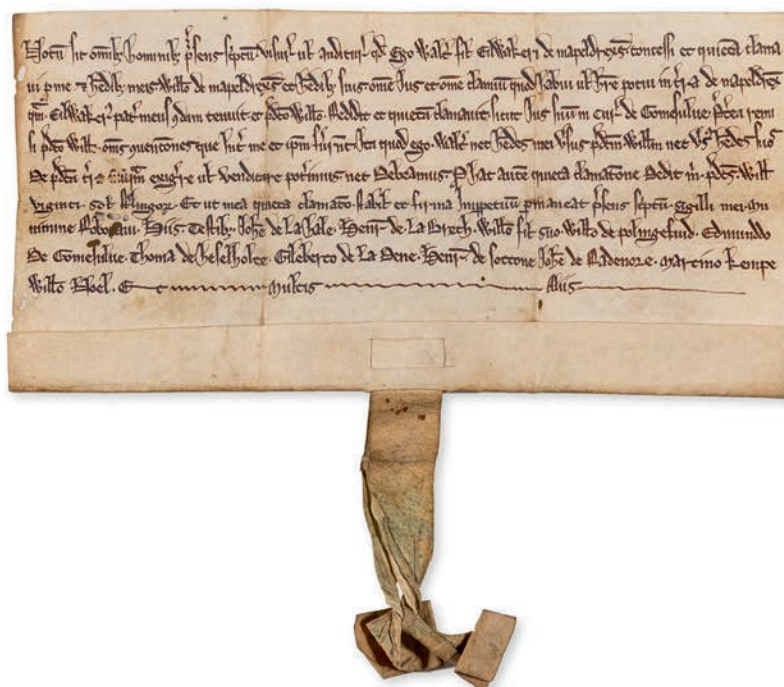 Notū sit om̄ib; hominib; p̄sens sc̄ptū visur' ul' auditur' qd' Ego Walt' fil' Eilwakeri de mapeldrex̄ concessi et quietā clama
ui p me ⁊ hēdib; meis Willo de mapeldrex̄ et hēdib; suis om̄e Ius et om̄e clamiū quod habui ul' hr̄e potui in t̄ra de mapeldrex̄
qm̄ Eilwaker' pat' meus q̄dam tenuit et p̄dco Willo Reddidit et quietū clamauit sicut Ius suū in Cur' de Gomesulue p̄t'ea remi
si p̄dco Will' om̄s ꝯuentiones que int' me et ip̄m fu'nt Ita quod ego Walt' nec hēdes mei v'sus p̄dcm Willm nec v's' hēdes suos
De p̄dca t'ra exig'e ul' vendicare pot'imus nec Debeamus P hac autē quieta clamatione Dedit m' p̄dcs Will'
viginti sol' st'lingor' Et ut mea quieta clamatio stabil' et firma Inppetuū pmaneat p̄sens sc̄ptū sigilli mei mu
nimine Roboraui Hiis Testib; Johe de La hale Henr' de La Birch Willo fil' suo Willo de polingefeud Edmundo
De Gomesulue Thoma de heselholte Gileberto de La Dene Henr' de soccone Johe de Radenore martino kempe
Willo Noel Et multis Aliis